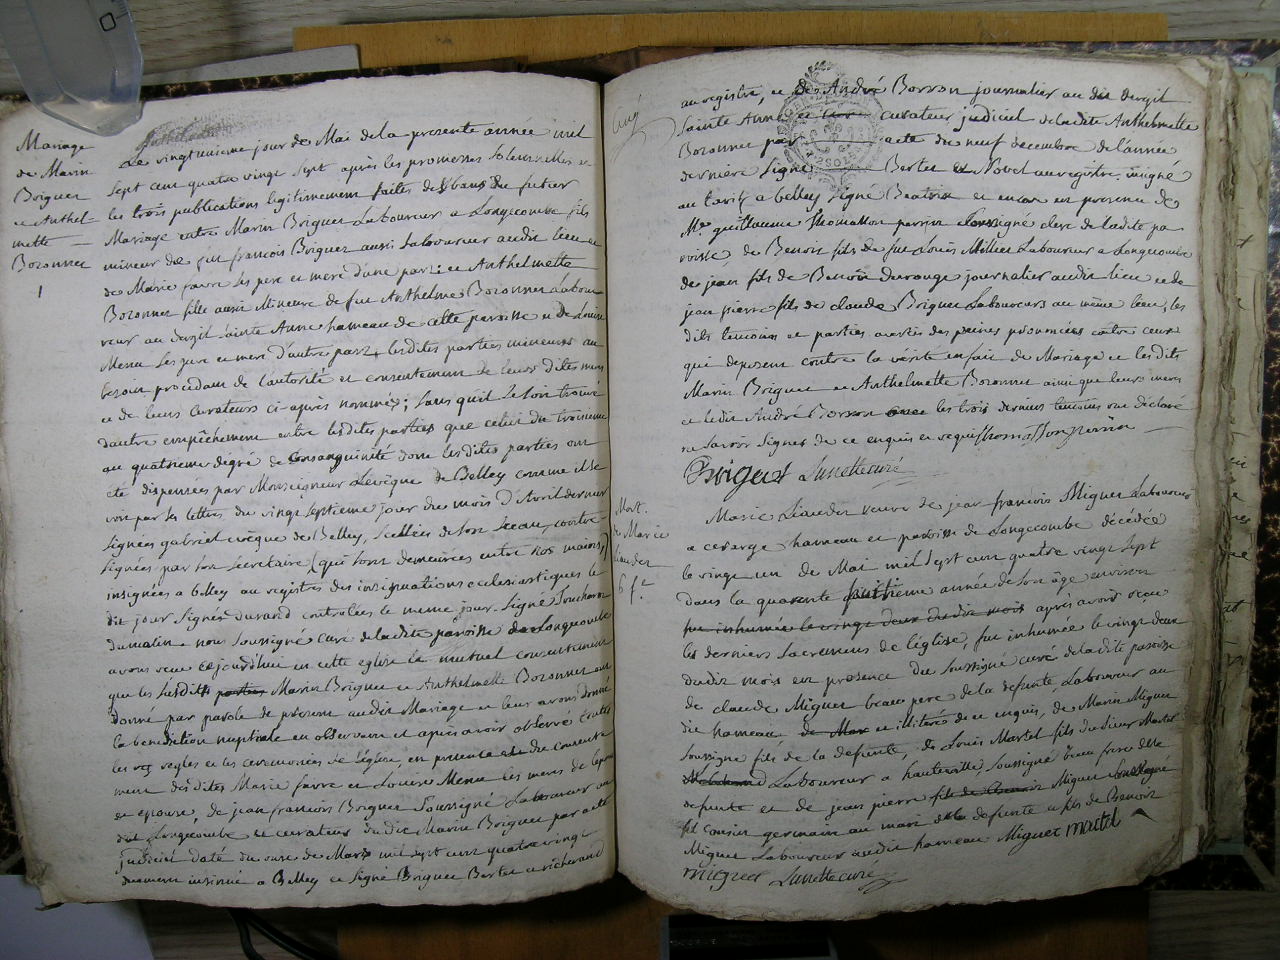 Mariage
de Marin
Briguet
et Anthel
mette
Bozonnet
1
Le vingtunieme jour de Mai de la presente année mil
sept cent quatre vingt sept après les promesses solennelles et
les trois publications legitimement faites des bans du futur
Mariage entre Marin Briguet Laboureur a Longecombe fils
mineur de feu françois Briguet aussi Laboureur audit lieu et
de Marie favre ses pere et mere d'une part : et Anthelmette
Bozonnet fille aussi Mineure de feu Anthelme Bozonnet Labou
reur au dergil sainte Anne hameau de cette paroisse et de Louise
Menu ses pere et mere d'autre part, lesdites parties mineures au
besoin procedant de l'autorité et consentement de leurs dites meres
et de leurs curateurs ci-après nommés ; sans qu'il se soit trouvé
d'autre empêchement entre lesdites parties que celui du troisieme
au quatrieme dégré de Consanguinité dont lesdites parties ont
eté dispensées par Monseigneur L'evêque de Belley comme il se
voit par ses lettres du vingt septieme jour du mois d'Avril dernier
signées gabriel evêque de Belley, scellées de son sceau, contre
signées par son secretaire (qui sont demeurées entre nos mains,)
insignées a belley au registre des insinuations eclesiastiques le
dit jour signés durand controlées le meme jour signé
du matin. nous soussigné curé de ladite paroisse de Longecombe
avons recu cejourd'hui en cette eglise le mutuel consentement
que lesdits parties Marin Briguet et Anthelmette Bozonnet ont
donné par parole de present audit Mariage et leur avons donné
la benediction nuptiale en observant et après avoir observé toutes
les regles et les ceremonies de l'église, en presence et du consente
ment desdites Marie favre et Louise Menu les meres de l'epoux
et epouse, de jean françois Briguet soussigné Laboureur au
dit Longecombe et curateur dudit Marin Briguet par acte
judiciel daté du onze de Mars mil sept cent quatre vingt
duement insinué a Belley et signé Briguet Bertet et richerand
au registre, et de André Borron journalier au dit dergil
Sainte Anne curateur judiciel de ladite Anthelmette
Bozonnet par acte du neuf decembre de l'année
derniere signé Bertet et Novel au registre, insigné
au tarif a belley signé Beatrix et encore en presence de
Mre guillaume Thomasson perrin soussigné clerc de ladite pa
roisse de Benoit fils de feu Louis Millet Laboureur a Longecombe
de jean fils de Benoit Durouge journalier audit lieu et de
jean pierre fils de claude Briguet Laboureurs au même lieu, les
dits temoins et parties avertis des peines prononcées contre ceux
qui deposent contre la vérité en fait de Mariage et lesdits
Marin Briguet et Anthelmette Bozonnet ainsi que leurs meres
et ledit André Borron avec les trois derniers temoins ont déclaré
ne savoir signer de ce enquis et requis Thomasson perrin
Briguet Lunette curé
Mort
de Marie
Liaudet
6 f.
Marie Liaudet veuve de jean françois Miguet Laboureur
a cerarge hameau et paroisse de Longecombe décédée
le vingt un de Mai mil sept cent quatre vingt sept
dans la quarente huitieme année de son âge environ
fut inhumée le vingt deux dudit mois après avoir reçu
les derniers sacremens de l'église, fut inhumée le vingt deux
dudit mois en presence du soussigné curé de ladite paroisse
de claude Miguet beau pere de la defunte, Laboureur au
dit hameau de Mar et illiteré de ce enquis, de Marin Miguet
soussigné fils de la defunte, de Louis Martel fils du sieur Martel
Laboureur a hauteville, soussigné beau frere de la
defunte et de jean pierre fils de Benoit Miguet soussigné
fil cousin germain au mari de la defunte et fils de Benoit
Miguet Laboureur audit hameau Miguet martel
miguet Lunette curé